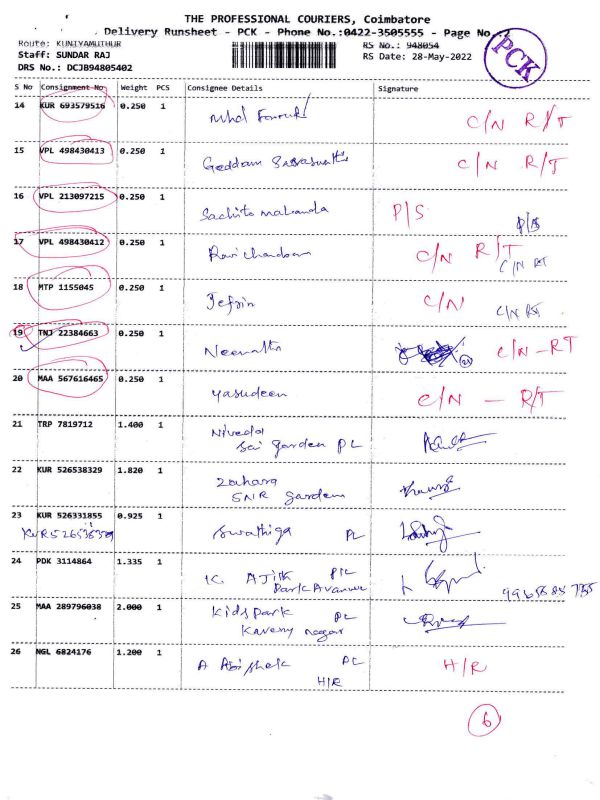 THE PROFESSIONAL COURIERS, Coimbatore
Delivery Runsheet - PCK - Phone No.:0422-3505555 - Page No.:2
Route: KUNIYAMUTHUR RS No.: 948054
Staff: SUNDAR RAJ RS Date: 28-May-2022
DRS No.: DCJB94805402
PCK
S No Consignment No Weight PCS Consignee Details Signature
14 KUR 693579516 0.250 1 C/N R/T
15 VPL 498430413 0.250 1 Geddam C/N R/T
16 VPL 213097215 0.250 1 P/S P/S
17 VPL 498430412 0.250 1 C/N R/T
C/N RT
18 MTP 1155045 0.250 1 Jefrin C/N C/N RT
19 TNJ 22384663 0.250 1 C/N - RT
20 MAA 567616465 0.250 1 Yasudeen C/N - R/T
21 TRP 7819712 1.400 1 Niveda
Sai garden PL
22 KUR 526538329 1.820 1 Zahara
SNR garden
23 KUR 526331855 0.925 1 Swathiga PL
24 PDK 3114864 1.335 1 K. AJith PL
Park Avanue
25 MAA 289796038 2.000 1 Kidspark PL
Kavery nagar
26 NGL 6824176 1.200 1 A Abishek PL H/R
H/R
6